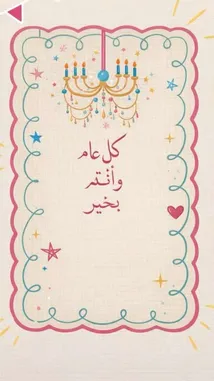 كل عام
وأنتم
بخير